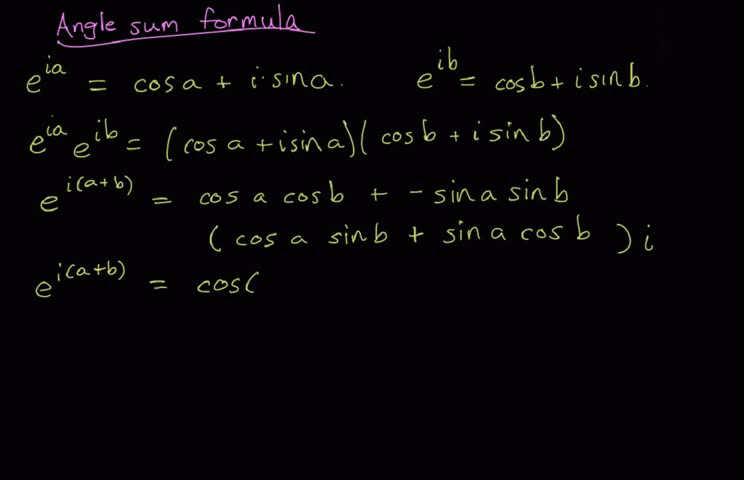 Angle sum formula
e^{ia} = cos a + i·sin a. e^{ib} = cos b + i sin b.
e^{ia} e^{ib} = (cos a + i sin a)(cos b + i sin b)
e^{i(a+b)} = cos a cos b + - sin a sin b
(cos a sin b + sin a cos b) i
e^{i(a+b)} = cos(